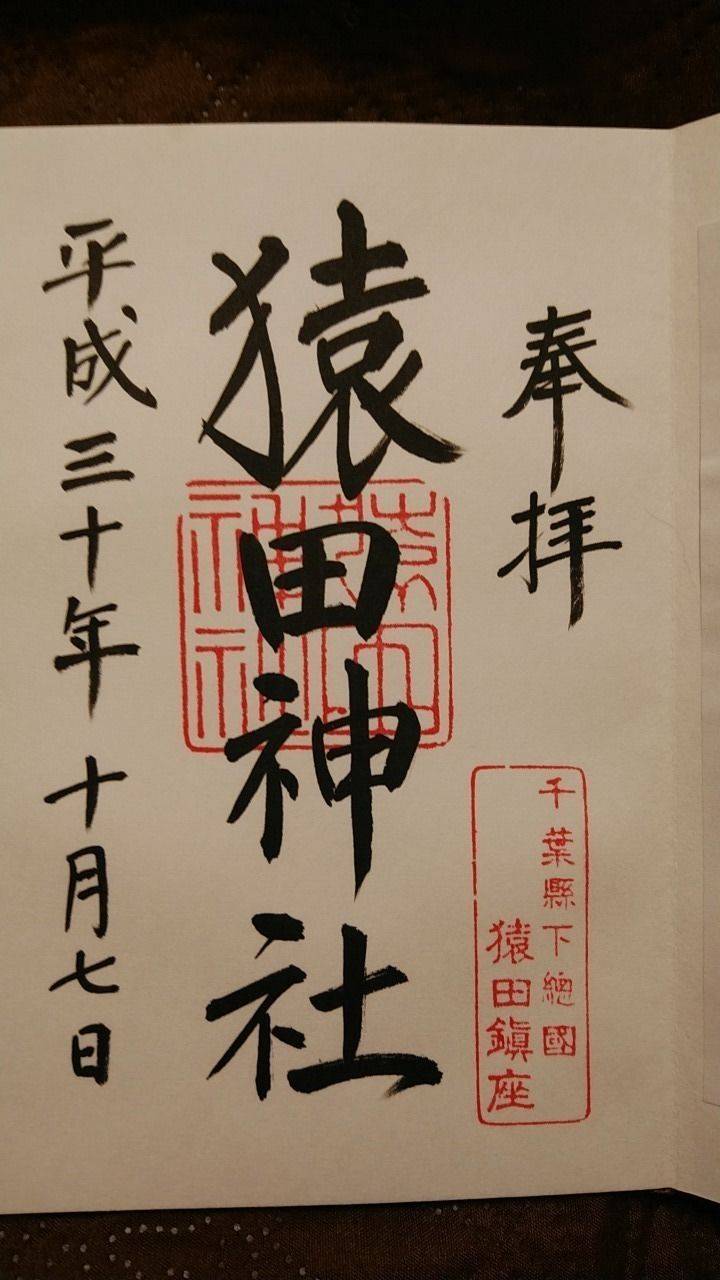 奉拝
千葉縣下總國
猿田鎮座
猿田神社
猿田神社
平成三十年十月七日